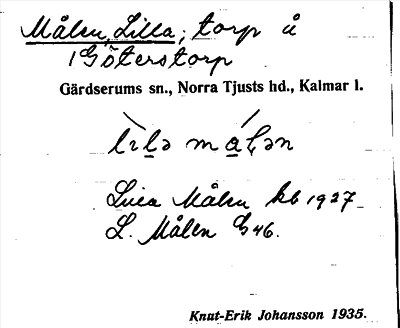 Målen, Lilla; torp å
1 Göterstorp
Gärdserums sn., Norra Tjusts hd., Kalmar l.
lìlə málən
Lilla Målen kb 1927
L. Målen G46.
Knut-Erik Johansson 1935.